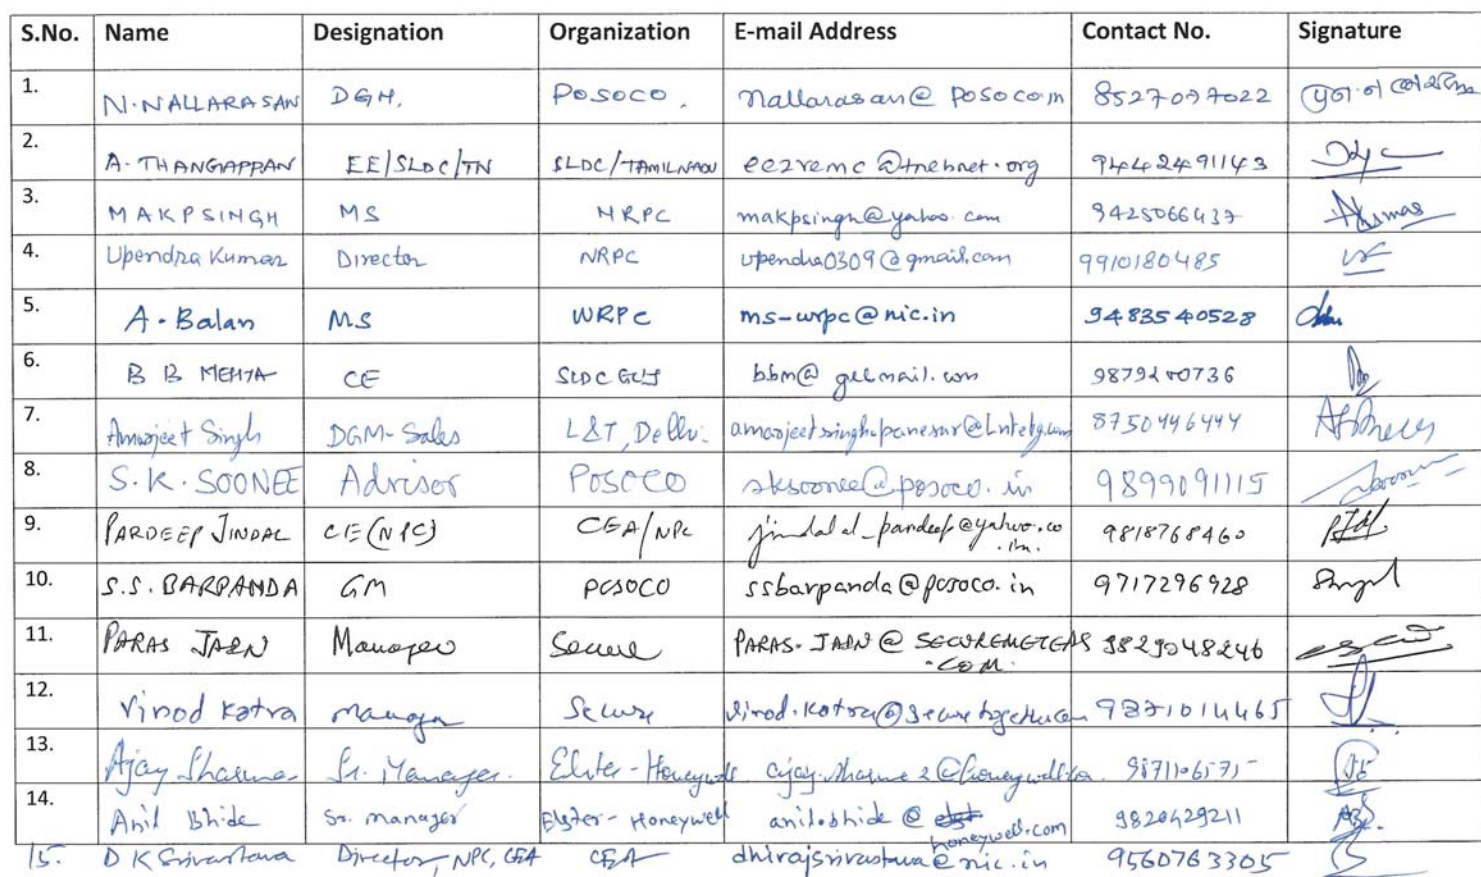 S.No. Name Designation Organization E-mail Address Contact No. Signature
1. N. NALLARASAN DGM, POSOCO, nallarasan@posoco.in 8527097022
2. A. THANGAPPAN EE/SLDC/TN SLDC/TAMILNADU ee2remc@tnebnet.org 9442491143
3. MAKPSINGH MS NRPC makpsingh@yahoo.com 9425066437
4. Upendra Kumar Director NRPC upendra0309@gmail.com 9910180485
5. A. Balan MS WRPC ms-wrpc@nic.in 9483540528
6. B B MEHTA CE SLDC GUJ bbm@gebmail.com 9879200736
7. Amarjeet Singh DGM-Sales L&T, Delhi. amarjeetsingh.panesar@Lntebg.com 8750446444
8. S.K. SOONEE Advisor POSOCO sksoonee@posoco.in 9899091115
9. PARDEEP JINDAL CE(NPC) CEA/NPC jindal_pardeep@yahoo.co
.in. 9818768460
10. S.S. BARPANDA GM POSOCO ssbarpanda@posoco.in 9717296928
11. PARAS JAIN Manager Secure PARAS.JAIN@SECUREMETERS 9829048246
.COM.
12. Vinod Katra Manager Secure
13. Ajay Sharma Sr. Manager. Elster-Honeywell ajay.sharma2@honeywell.com
14. Anil Bhide Sr. manager Elster-Honeywell anil.bhide@ 9820429211
honeywell.com
15. D K Srivastava Director, NPC, CEA CEA dhirajsrivastava@nic.in 9560763305